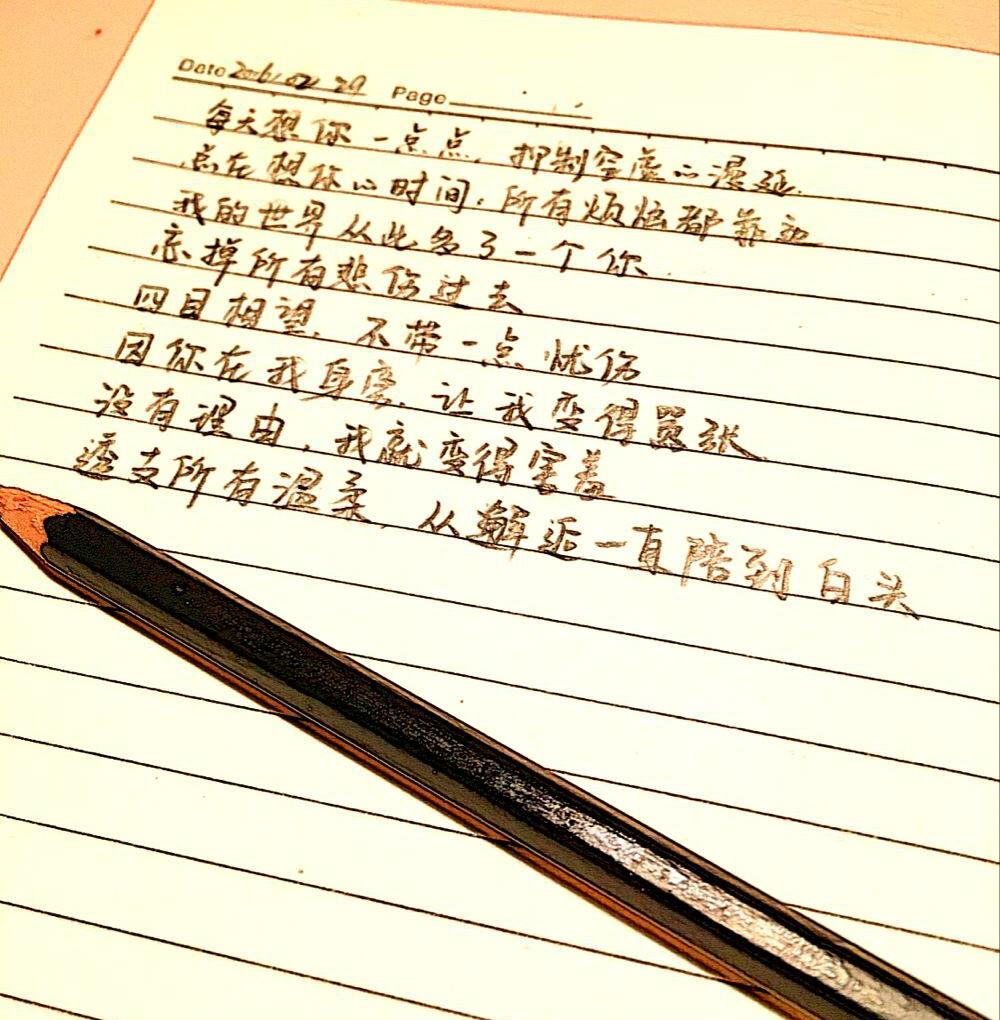 Date 2016/02/29 Page
每天想你一点点，抑制空虚的漫延.
点在想你的时间，所有烦恼都靠边
我的世界从此多了一个你.
忘掉所有悲伤过去
四目相望，不带一点忧伤
因你在我身旁，让我变得嚣张
没有理由，我就变得害羞
透支所有温柔，从邂逅一直陪到白头